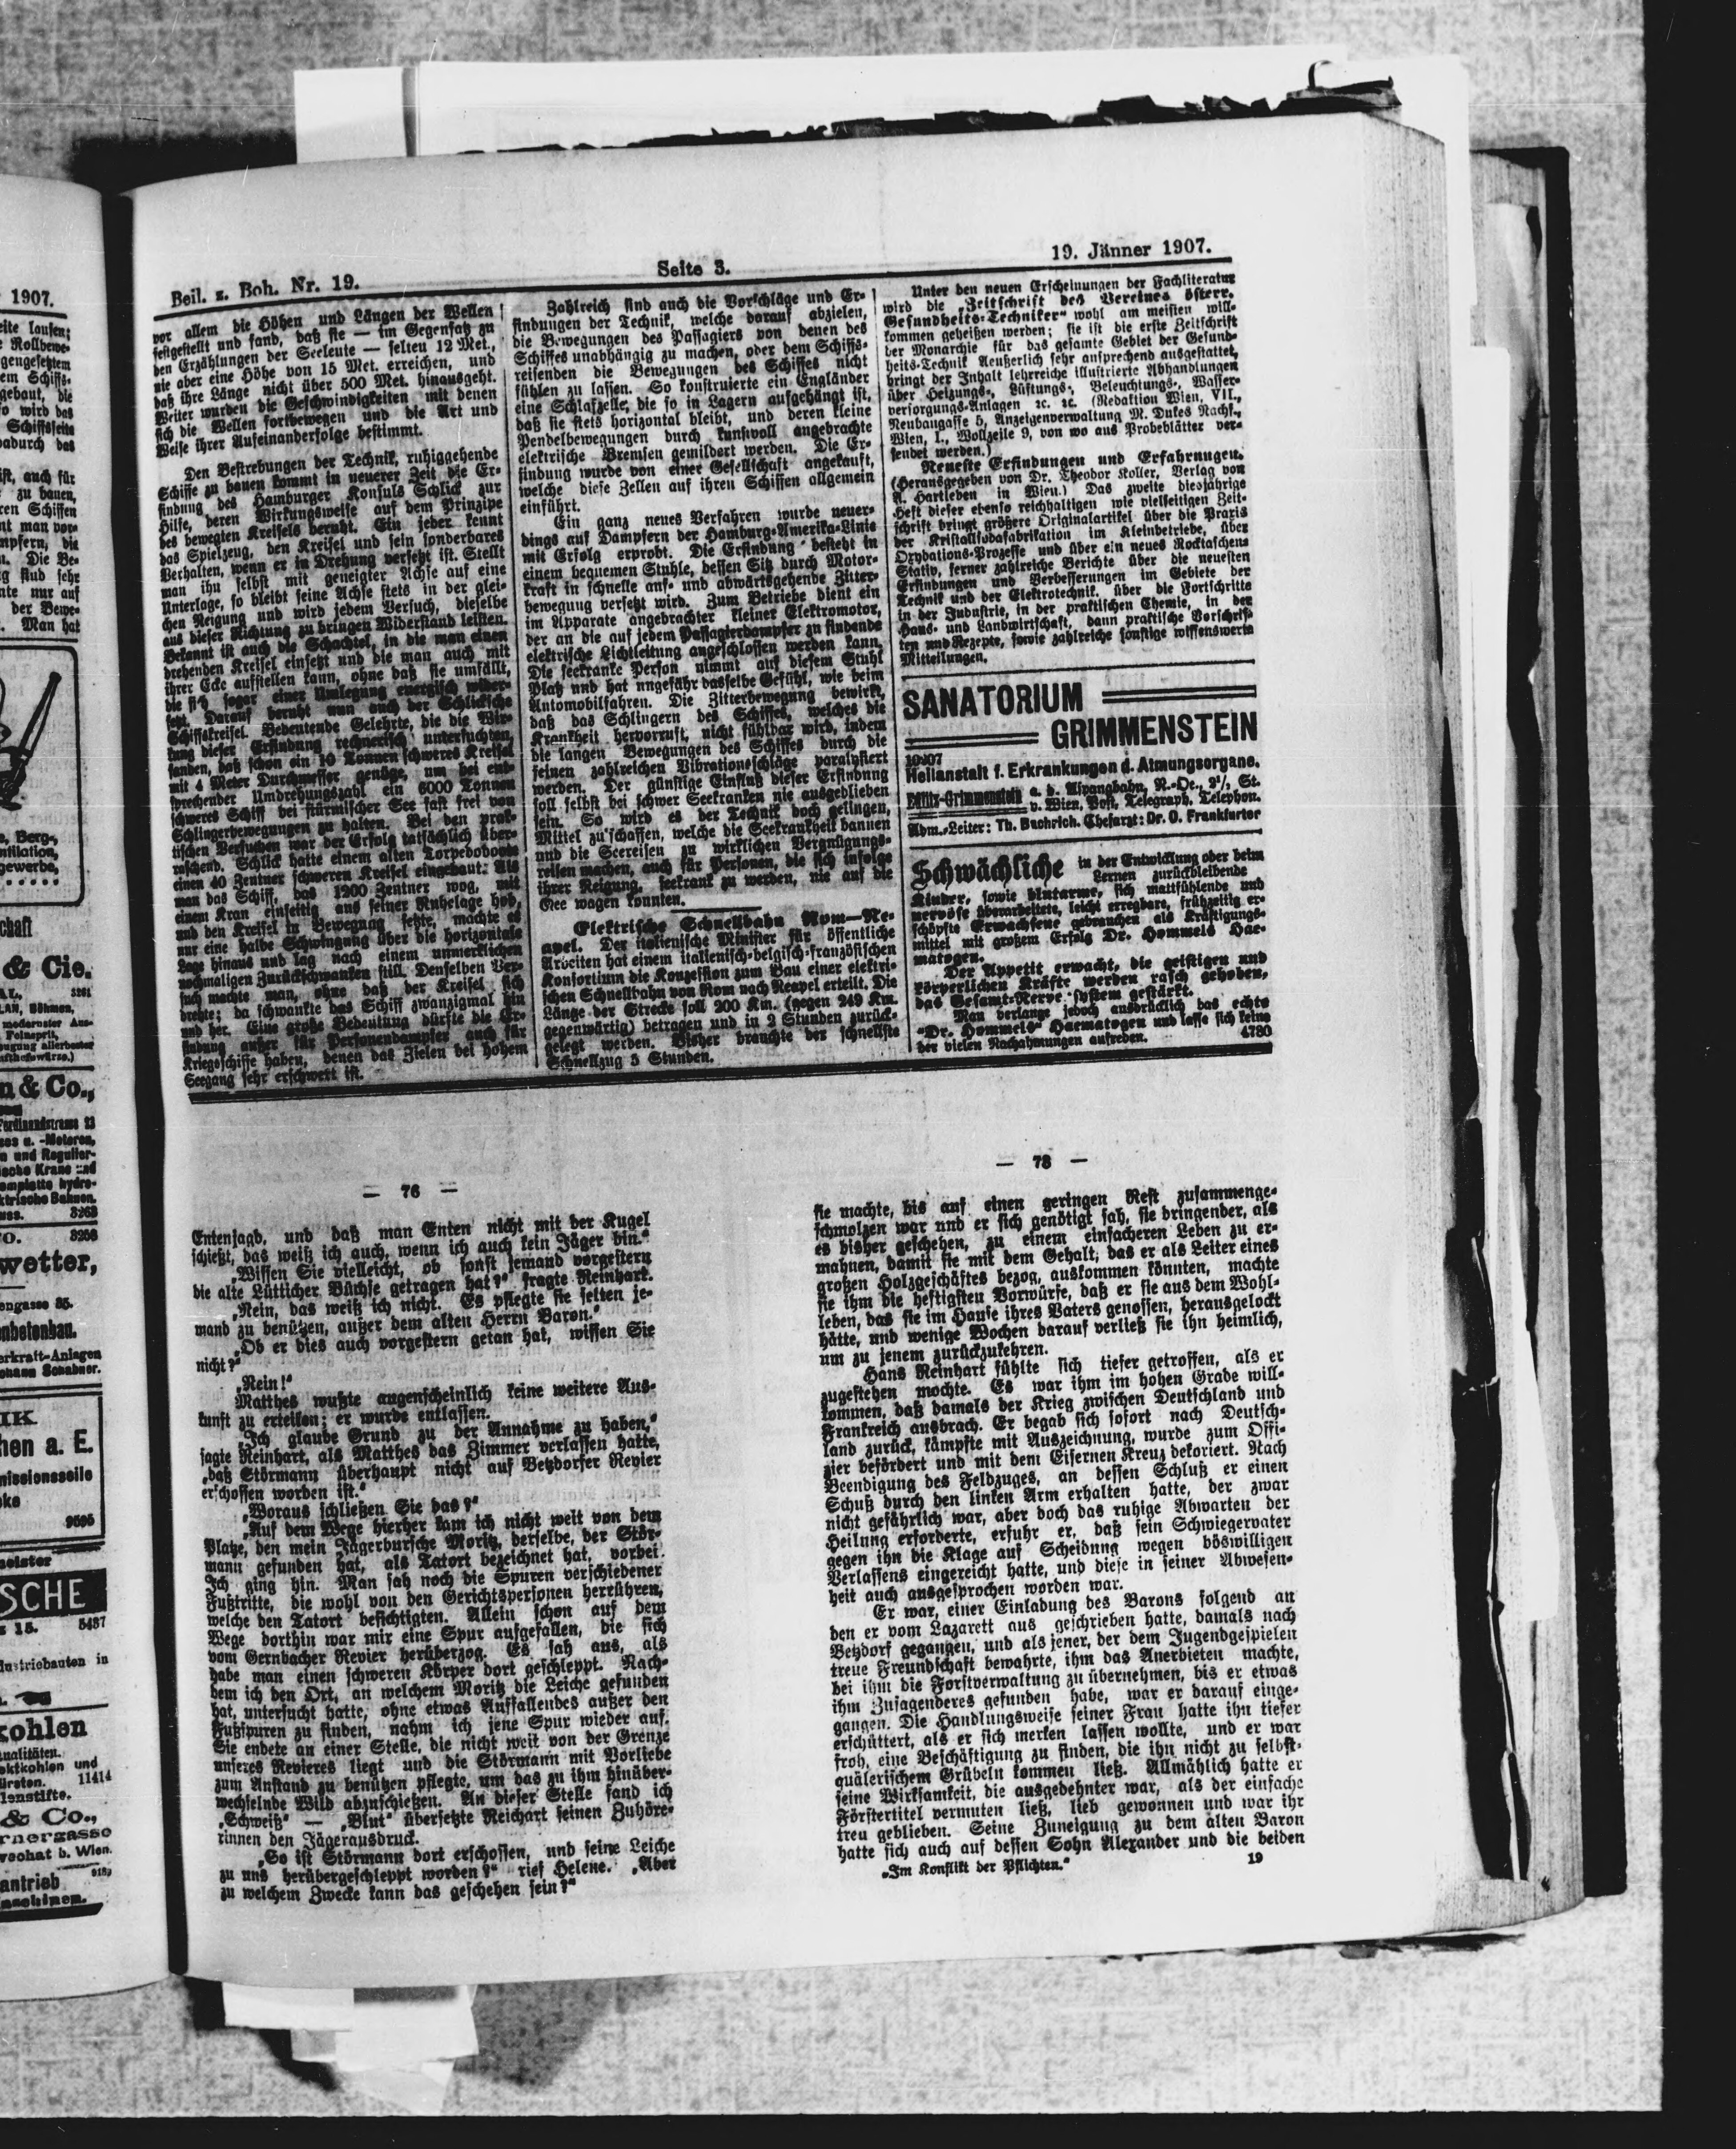 1907.
eite laufen;
Rollbewe-
gengesetztem
em Schiffs-
gebaut, die
o wird das
Schiffsseite
dadurch das
ist, auch für
zu bauen,
ren Schiffen
nt man vor-
mpfern, die
n. Die Be-
g sind sehr
nte nur auf
der Bewe-
. Man hat
e, Berg-,
ntilation,
gewerbe,
chaft
& Cie.
AL, 3261
LAN, Böhmen,
modernster Aus-
Feinsprit.
n & Co.,
Ferdinandstrasse 23
-Motoren,
n und Regulier-
sche Krane und
omplette hydro-
ktrische Bahnen.
uss. 3263
O. 3256
wetter,
engasse 35.
nbetonbau.
erkraft-Anlagen
ohann Schabner.
IK
hen a. E.
missionsseile
ke
9595
meister
SCHE
15. 5437
dustriebauten in
kohlen
ualitäten.
ektkohlen und
ürsten. 11414
lenstifte.
& Co.,
rnergasse
vechat b. Wien.
antrieb
maschinen.
Beil. z. Boh. Nr. 19.
Seite 3.
19. Jänner 1907.
vor allem die Höhen und Längen der Wellen
festgestellt und fand, daß sie — im Gegensatz zu
den Erzählungen der Seeleute — selten 12 Met.,
nie aber eine Höhe von 15 Met. erreichen, und
daß ihre Länge nicht über 500 Met. hinausgeht.
Weiter wurden die Geschwindigkeiten mit denen
sich die Wellen fortbewegen und die Art und
Weise ihrer Aufeinanderfolge bestimmt.
Den Bestrebungen der Technik, ruhiggehende
Schiffe zu bauen kommt in neuerer Zeit die Er-
findung des Hamburger Konsuls Schlick zur
Hilfe, deren Wirkungsweise auf dem Prinzipe
des bewegten Kreisels beruht. Ein jeder kennt
das Spielzeug, den Kreisel und sein sonderbares
Verhalten, wenn er in Drehung versetzt ist. Stellt
man ihn selbst mit geneigter Achse auf eine
Unterlage, so bleibt seine Achse stets in der glei-
chen Neigung und wird jedem Versuch, dieselbe
aus dieser Richtung zu bringen Widerstand leisten.
Bekannt ist auch die Schachtel, in die man einen
drehenden Kreisel einsetzt und die man auch mit
ihrer Ecke aufstellen kann, ohne daß sie umfällt,
die sich sogar einer Umlegung energisch wider-
setzt. Darauf beruht nun auch der Schlicksche
Schiffskreisel. Bedeutende Gelehrte, die die Wir-
kung dieser Erfindung rechnerisch untersuchten,
fanden, daß schon ein 10 Tonnen schweres Kreisel
mit 4 Meter Durchmesser genüge, um bei ent-
sprechender Umdrehungszahl ein 6000 Tonnen
schweres Schiff bei stürmischer See fast frei von
Schlingerbewegungen zu halten. Bei den prak-
tischen Versuchen war der Erfolg tatsächlich über-
raschend. Schlick hatte einem alten Torpedoboote
einen 40 Zentner schweren Kreisel eingebaut. Als
man das Schiff, das 1200 Zentner wog, mit
einem Kran einseitig aus seiner Ruhelage hob,
und den Kreisel in Bewegung setzte, machte es
nur eine halbe Schwingung über die horizontale
Lage hinaus und lag nach einem unmerklichen
nochmaligen Zurückschwanken still. Denselben Ver-
such machte man, ohne daß der Kreisel sich
drehte; da schwankte das Schiff zwanzigmal hin
und her. Eine große Bedeutung dürfte die Er-
findung außer für Personendampfer auch für
Kriegsschiffe haben, denen das Zielen bei hohem
Seegang sehr erschwert ist.
Zahlreich sind auch die Vorschläge und Er-
findungen der Technik, welche darauf abzielen,
die Bewegungen des Passagiers von denen des
Schiffes unabhängig zu machen, oder dem Schiffs-
reisenden die Bewegungen des Schiffes nicht
fühlen zu lassen. So konstruierte ein Engländer
eine Schlafzelle, die so in Lagern aufgehängt ist,
daß sie stets horizontal bleibt, und deren kleine
Pendelbewegungen durch kunstvoll angebrachte
elektrische Bremsen gemildert werden. Die Er-
findung wurde von einer Gesellschaft angekauft,
welche diese Zellen auf ihren Schiffen allgemein
einführt.
Ein ganz neues Verfahren wurde neuer-
dings auf Dampfern der Hamburg-Amerika-Linie
mit Erfolg erprobt. Die Erfindung besteht in
einem bequemen Stuhle, dessen Sitz durch Motor-
kraft in schnelle auf- und abwärtsgehende Zitter-
bewegung versetzt wird. Zum Betriebe dient ein
im Apparate angebrachter kleiner Elektromotor,
der an die auf jedem Passagierdampfer zu findende
elektrische Lichtleitung angeschlossen werden kann.
Die seekranke Person nimmt auf diesem Stuhl
Platz und hat ungefähr dasselbe Gefühl, wie beim
Automobilfahren. Die Zitterbewegung bewirkt,
daß das Schlingern des Schiffes, welches die
Krankheit hervorruft, nicht fühlbar wird, indem
die langen Bewegungen des Schiffes durch die
feinen zahlreichen Vibrationsschläge paralysiert
werden. Der günstige Einfluß dieser Erfindung
soll selbst bei schwer Seekranken nie ausgeblieben
sein. So wird es der Technik doch gelingen,
Mittel zu schaffen, welche die Seekrankheit bannen
und die Seereisen zu wirklichen Vergnügungs-
reisen machen, auch für Personen, die sich infolge
ihrer Neigung, seekrank zu werden, nie auf die
See wagen konnten.
Elektrische Schnellbahn Rom—Ne-
apel. Der italienische Minister für öffentliche
Arbeiten hat einem italienisch-belgisch-französischen
Konsortium die Konzession zum Bau einer elektri-
schen Schnellbahn von Rom nach Neapel erteilt. Die
Länge der Strecke soll 200 Km. (gegen 249 Km.
gegenwärtig) betragen und in 2 Stunden zurück-
gelegt werden. Bisher brauchte der schnellste
Schnellzug 5 Stunden.
Unter den neuen Erscheinungen der Fachliteratur
wird die „Zeitschrift des Vereines österr.
Gesundheits-Techniker“ wohl am meisten will-
kommen geheißen werden; sie ist die erste Zeitschrift
der Monarchie für das gesamte Gebiet der Gesund-
heits-Technik Aeußerlich sehr ansprechend ausgestattet,
bringt der Inhalt lehrreiche illustrierte Abhandlungen
über Heizungs-, Lüftungs-, Beleuchtungs-, Wasser-
versorgungs-Anlagen ꝛc. ꝛc. (Redaktion Wien, VII.,
Neubaugasse 5, Anzeigenverwaltung M. Dukes Nachf.,
Wien, I., Wollzeile 9, von wo aus Probeblätter ver-
sendet werden.)
Neueste Erfindungen und Erfahrungen.
(Herausgegeben von Dr. Theodor Koller, Verlag von
A. Hartleben in Wien.) Das zweite diesjährige
Heft dieser ebenso reichhaltigen wie vielseitigen Zeit-
schrift bringt größere Originalartikel über die Praxis
der Kristallsodafabrikation im Kleinbetriebe, über
Oxydations-Prozesse und über ein neues Rocktaschen-
Stativ, ferner zahlreiche Berichte über die neuesten
Erfindungen und Verbesserungen im Gebiete der
Technik und der Elektrotechnik, über die Fortschritte
in der Industrie, in der praktischen Chemie, in der
Haus- und Landwirtschaft, dann praktische Vorschrif-
ten und Rezepte, sowie zahlreiche sonstige wissenswerte
Mitteilungen.
SANATORIUM
GRIMMENSTEIN
10407
Heilanstalt f. Erkrankungen d. Atmungsorgane.
Edlitz-Grimmenstein a. d. Aspangbahn, N.-Öt., 2½ St.
v. Wien, Post, Telegraph, Telephon.
Adm.-Leiter: Th. Bachrich. Chefarzt: Dr. O. Frankfurter
Schwächliche in der Entwicklung oder beim
Lernen zurückbleibende
Kinder, sowie blutarme, sich mattfühlende und
nervöse überarbeitete, leicht erregbare, frühzeitig er-
schöpfte Erwachsene gebrauchen als Kräftigungs-
mittel mit großem Erfolg Dr. Hommels Hae-
matogen.
Der Appetit erwacht, die geistigen und
körperlichen Kräfte werden rasch gehoben,
das Gesamt-Nerve-system gestärkt.
Man verlange jedoch ausdrücklich das echte
„Dr. Hommels“ Haematogen und lasse sich keine
der vielen Nachahmungen aufreden. 4780
— 76 —
Entenjagd, und daß man Enten nicht mit der Kugel
schießt, das weiß ich auch, wenn ich auch kein Jäger bin.“
„Wissen Sie vielleicht, ob sonst jemand vorgestern
die alte Lütticher Büchse getragen hat?“ fragte Reinhart.
„Nein, das weiß ich nicht. Es pflegte sie selten je-
mand zu benützen, außer dem alten Herrn Baron.“
„Ob er dies auch vorgestern getan hat, wissen Sie
nicht?“
„Nein!“
Matthes wußte augenscheinlich keine weitere Aus-
kunft zu erteilen; er wurde entlassen.
„Ich glaube Grund zu der Annahme zu haben,“
sagte Reinhart, als Matthes das Zimmer verlassen hatte,
„daß Störmann überhaupt nicht auf Betzdorfer Revier
erschossen worden ist.“
„Woraus schließen Sie das?“
„Auf dem Wege hierher kam ich nicht weit von dem
Platze, den mein Jägerbursche Moritz, derselbe, der Stör-
mann gefunden hat, als Tatort bezeichnet hat, vorbei.
Ich ging hin. Man sah noch die Spuren verschiedener
Fußtritte, die wohl von den Gerichtspersonen herrühren,
welche den Tatort besichtigten. Allein schon auf dem
Wege dorthin war mir eine Spur aufgefallen, die sich
vom Gernbacher Revier herüberzog. Es sah aus, als
habe man einen schweren Körper dort geschleppt. Nach-
dem ich den Ort, an welchem Moritz die Leiche gefunden
hat, untersucht hatte, ohne etwas Auffallendes außer den
Fußspuren zu finden, nahm ich jene Spur wieder auf.
Sie endete an einer Stelle, die nicht weit von der Grenze
unseres Revieres liegt und die Störmann mit Vorliebe
zum Anstand zu benützen pflegte, um das zu ihm hinüber-
wechselnde Wild abzuschießen. An dieser Stelle fand ich
„Schweiß“ — „Blut“ übersetzte Reichart seinen Zuhöre-
rinnen den Jägerausdruck.
„So ist Störmann dort erschossen, und seine Leiche
zu uns herübergeschleppt worden?“ rief Helene. „Aber
zu welchem Zwecke kann das geschehen sein?“
— 78 —
sie machte, bis auf einen geringen Rest zusammenge-
schmolzen war und er sich genötigt sah, sie dringender, als
es bisher geschehen, zu einem einfacheren Leben zu er-
mahnen, damit sie mit dem Gehalt, das er als Leiter eines
großen Holzgeschäftes bezog, auskommen könnten, machte
sie ihm die heftigsten Vorwürfe, daß er sie aus dem Wohl-
leben, das sie im Hause ihres Vaters genossen, herausgelockt
hätte, und wenige Wochen darauf verließ sie ihn heimlich,
um zu jenem zurückzukehren.
Hans Reinhart fühlte sich tiefer getroffen, als er
zugestehen mochte. Es war ihm im hohen Grade will-
kommen, daß damals der Krieg zwischen Deutschland und
Frankreich ausbrach. Er begab sich sofort nach Deutsch-
land zurück, kämpfte mit Auszeichnung, wurde zum Offi-
zier befördert und mit dem Eisernen Kreuz dekoriert. Nach
Beendigung des Feldzuges, an dessen Schluß er einen
Schuß durch den linken Arm erhalten hatte, der zwar
nicht gefährlich war, aber doch das ruhige Abwarten der
Heilung erforderte, erfuhr er, daß sein Schwiegervater
gegen ihn die Klage auf Scheidung wegen böswilligen
Verlassens eingereicht hatte, und diese in seiner Abwesen-
heit auch ausgesprochen worden war.
Er war, einer Einladung des Barons folgend an
den er vom Lazarett aus geschrieben hatte, damals nach
Betzdorf gegangen, und als jener, der dem Jugendgespielen
treue Freundschaft bewahrte, ihm das Anerbieten machte,
bei ihm die Forstverwaltung zu übernehmen, bis er etwas
ihm Zusagenderes gefunden habe, war er darauf einge-
gangen. Die Handlungsweise seiner Frau hatte ihn tiefer
erschüttert, als er sich merken lassen wollte, und er war
froh, eine Beschäftigung zu finden, die ihn nicht zu selbst-
quälerischem Grübeln kommen ließ. Allmählich hatte er
seine Wirksamkeit, die ausgedehnter war, als der einfache
Förstertitel vermuten ließ, lieb gewonnen und war ihr
treu geblieben. Seine Zuneigung zu dem alten Baron
hatte sich auch auf dessen Sohn Alexander und die beiden
„Im Konflikt der Pflichten.“ 19